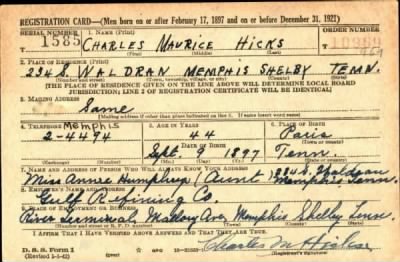 REGISTRATION CARD—(Men born on or after February 17, 1897 and on or before December 31, 1921)
SERIAL NUMBER 1. NAME (Print) ORDER NUMBER
1585 CHARLES MAURICE HICKS
2. PLACE OF RESIDENCE (Print)
234 S WALDRAN MEMPHIS SHELBY TENN.
(Number and street) (Town, township, village, or city) (County) (State)
[THE PLACE OF RESIDENCE GIVEN ON THE LINE ABOVE WILL DETERMINE LOCAL BOARD
JURISDICTION; LINE 2 OF REGISTRATION CERTIFICATE WILL BE IDENTICAL]
3. MAILING ADDRESS
Same
[Mailing address if other than place indicated on line 2. If same insert word same]
4. TELEPHONE 5. AGE IN YEARS 6. PLACE OF BIRTH
Memphis 44 Paris
2-4494 DATE OF BIRTH
Sept 9 1897 Tenn.
(Exchange) (Number) (Mo.) (Day) (Yr.) (State or country)
7. NAME AND ADDRESS OF PERSON WHO WILL ALWAYS KNOW YOUR ADDRESS
234 S. Waldran
Miss Annie Humphrey (Aunt) Memphis Tenn.
8. EMPLOYER'S NAME AND ADDRESS
Gulf Refining Co.
9. PLACE OF EMPLOYMENT OR BUSINESS
River Terminal, Mallory Ave, Memphis Shelby Tenn.
(Number and street or R. F. D. number) (Town) (County) (State)
I AFFIRM THAT I HAVE VERIFIED ABOVE ANSWERS AND THAT THEY ARE TRUE.
D. S. S. Form 1
(Revised 4-1-42) (over)
Charles M Hicks
(Registrant's signature)